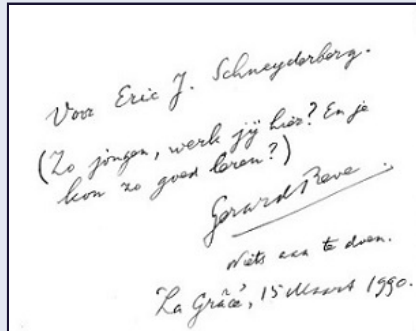 Voor Eric J. Schneyderberg.
(Zo jongen, werk jij hier? En je
kon zo goed leren?)
Gerard Reve.
Niets aan te doen.
La Grâce, 15 Maart 1990.